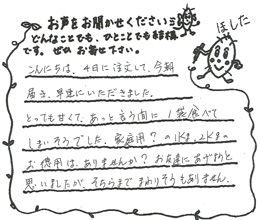 お声をお聞かせください
どんなことでも、ひとことでも結構
です。ぜひ お寄せ下さい。
ほした
こんにちは、4日に注文して、今朝
届き、早速にいただきました。
とっても甘くて、あっと言う間に 1袋食べて
しまいそうでした。家庭用?の1Kg、2Kgの
お徳用は、ありませんか? お友達にあげようと
思いましたが、そちらまで まわりそうもありません。